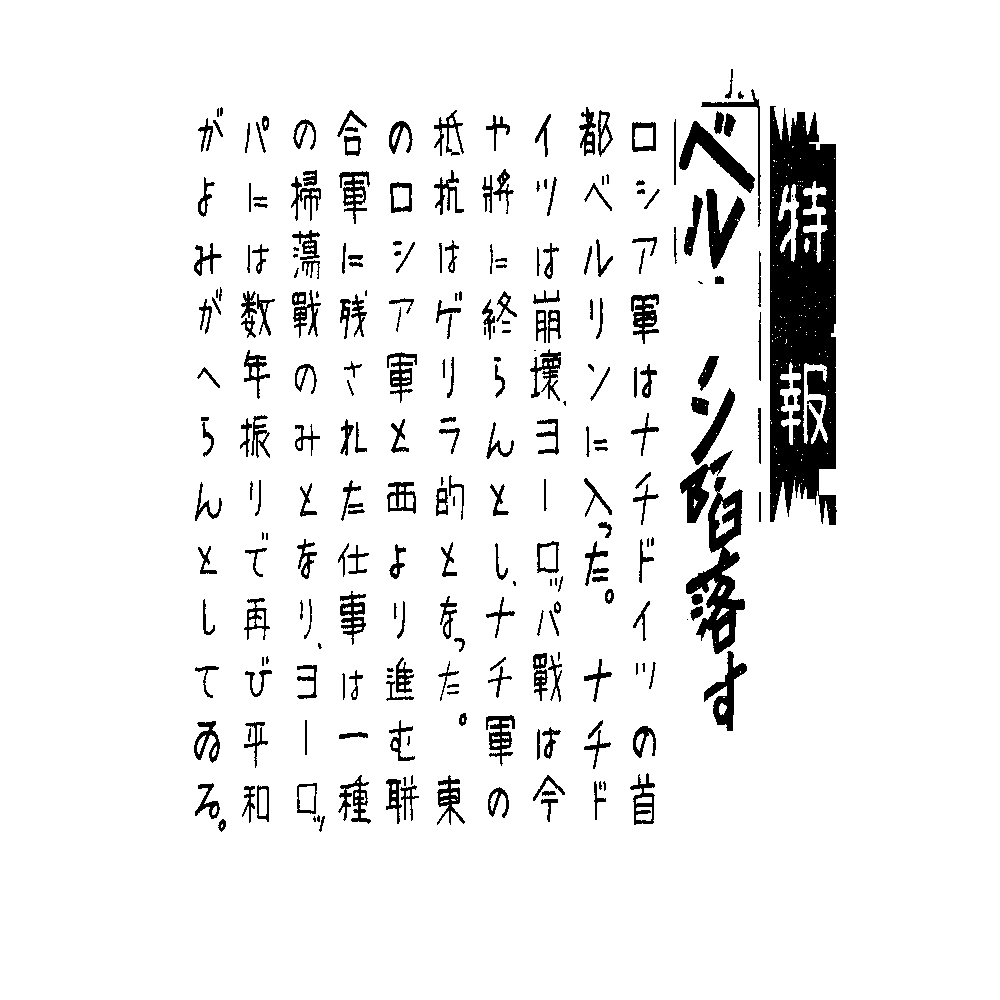 特報
ベルリン陥落す
ロシア軍はナチドイツの首
都ベルリンに入った。ナチド
イツは崩壊、ヨーロッパ戦は今
や將に終らんとし、ナチ軍の
抵抗はゲリラ的となった。東
のロシア軍と西より進む聯
合軍に残された仕事は一種
の掃蕩戰のみとなり、ヨーロッ
パには数年振りで再び平和
がよみがへらんとしてゐる。